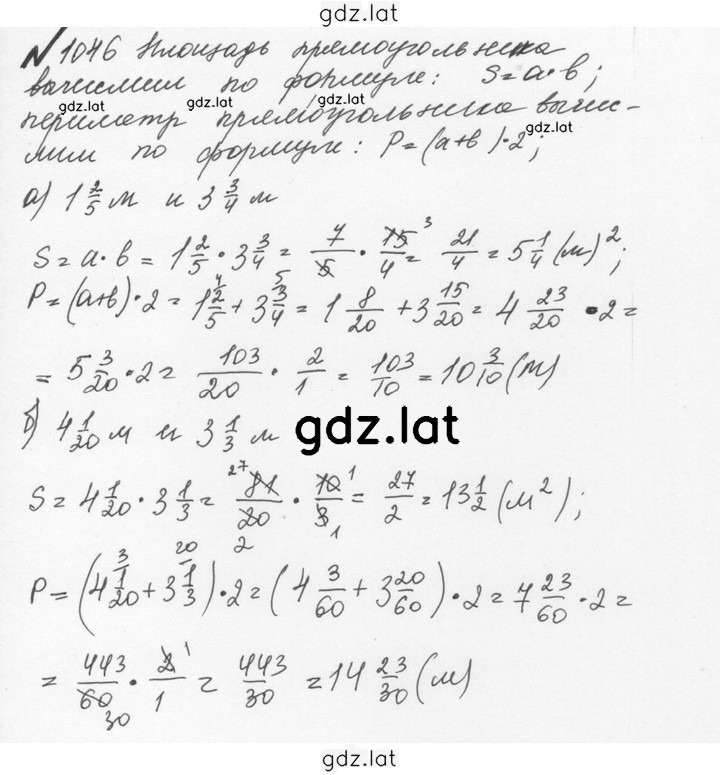 gdz.lat
№ 1046 Площадь прямоугольника
вычислим по формуле: S = a · b;
gdz.lat gdz.lat
периметр прямоугольника вычис-
gdz.lat gdz.lat gdz.lat
лим по формуле: P = (a+b) · 2;
а) 1 2/5 м и 3 3/4 м
S = a · b = 1 2/5 · 3 3/4 = 7/5 · 15/4 = 21/4 = 5 1/4 (м)²;
P = (a+b) · 2 = 1 2/5 + 3 3/4 = 1 8/20 + 3 15/20 = 4 23/20 · 2 =
= 5 3/20 · 2 = 103/20 · 2/1 = 103/10 = 10 3/10 (м)
б) 4 1/20 м и 3 1/3 м
gdz.lat
S = 4 1/20 · 3 1/3 = 81/20 · 10/3 = 27/2 = 13 1/2 (м²);
P = (4 1/20 + 3 1/3) · 2 = (4 3/60 + 3 20/60) · 2 = 7 23/60 · 2 =
= 443/60 · 2/1 = 443/30 = 14 23/30 (м)
gdz.lat